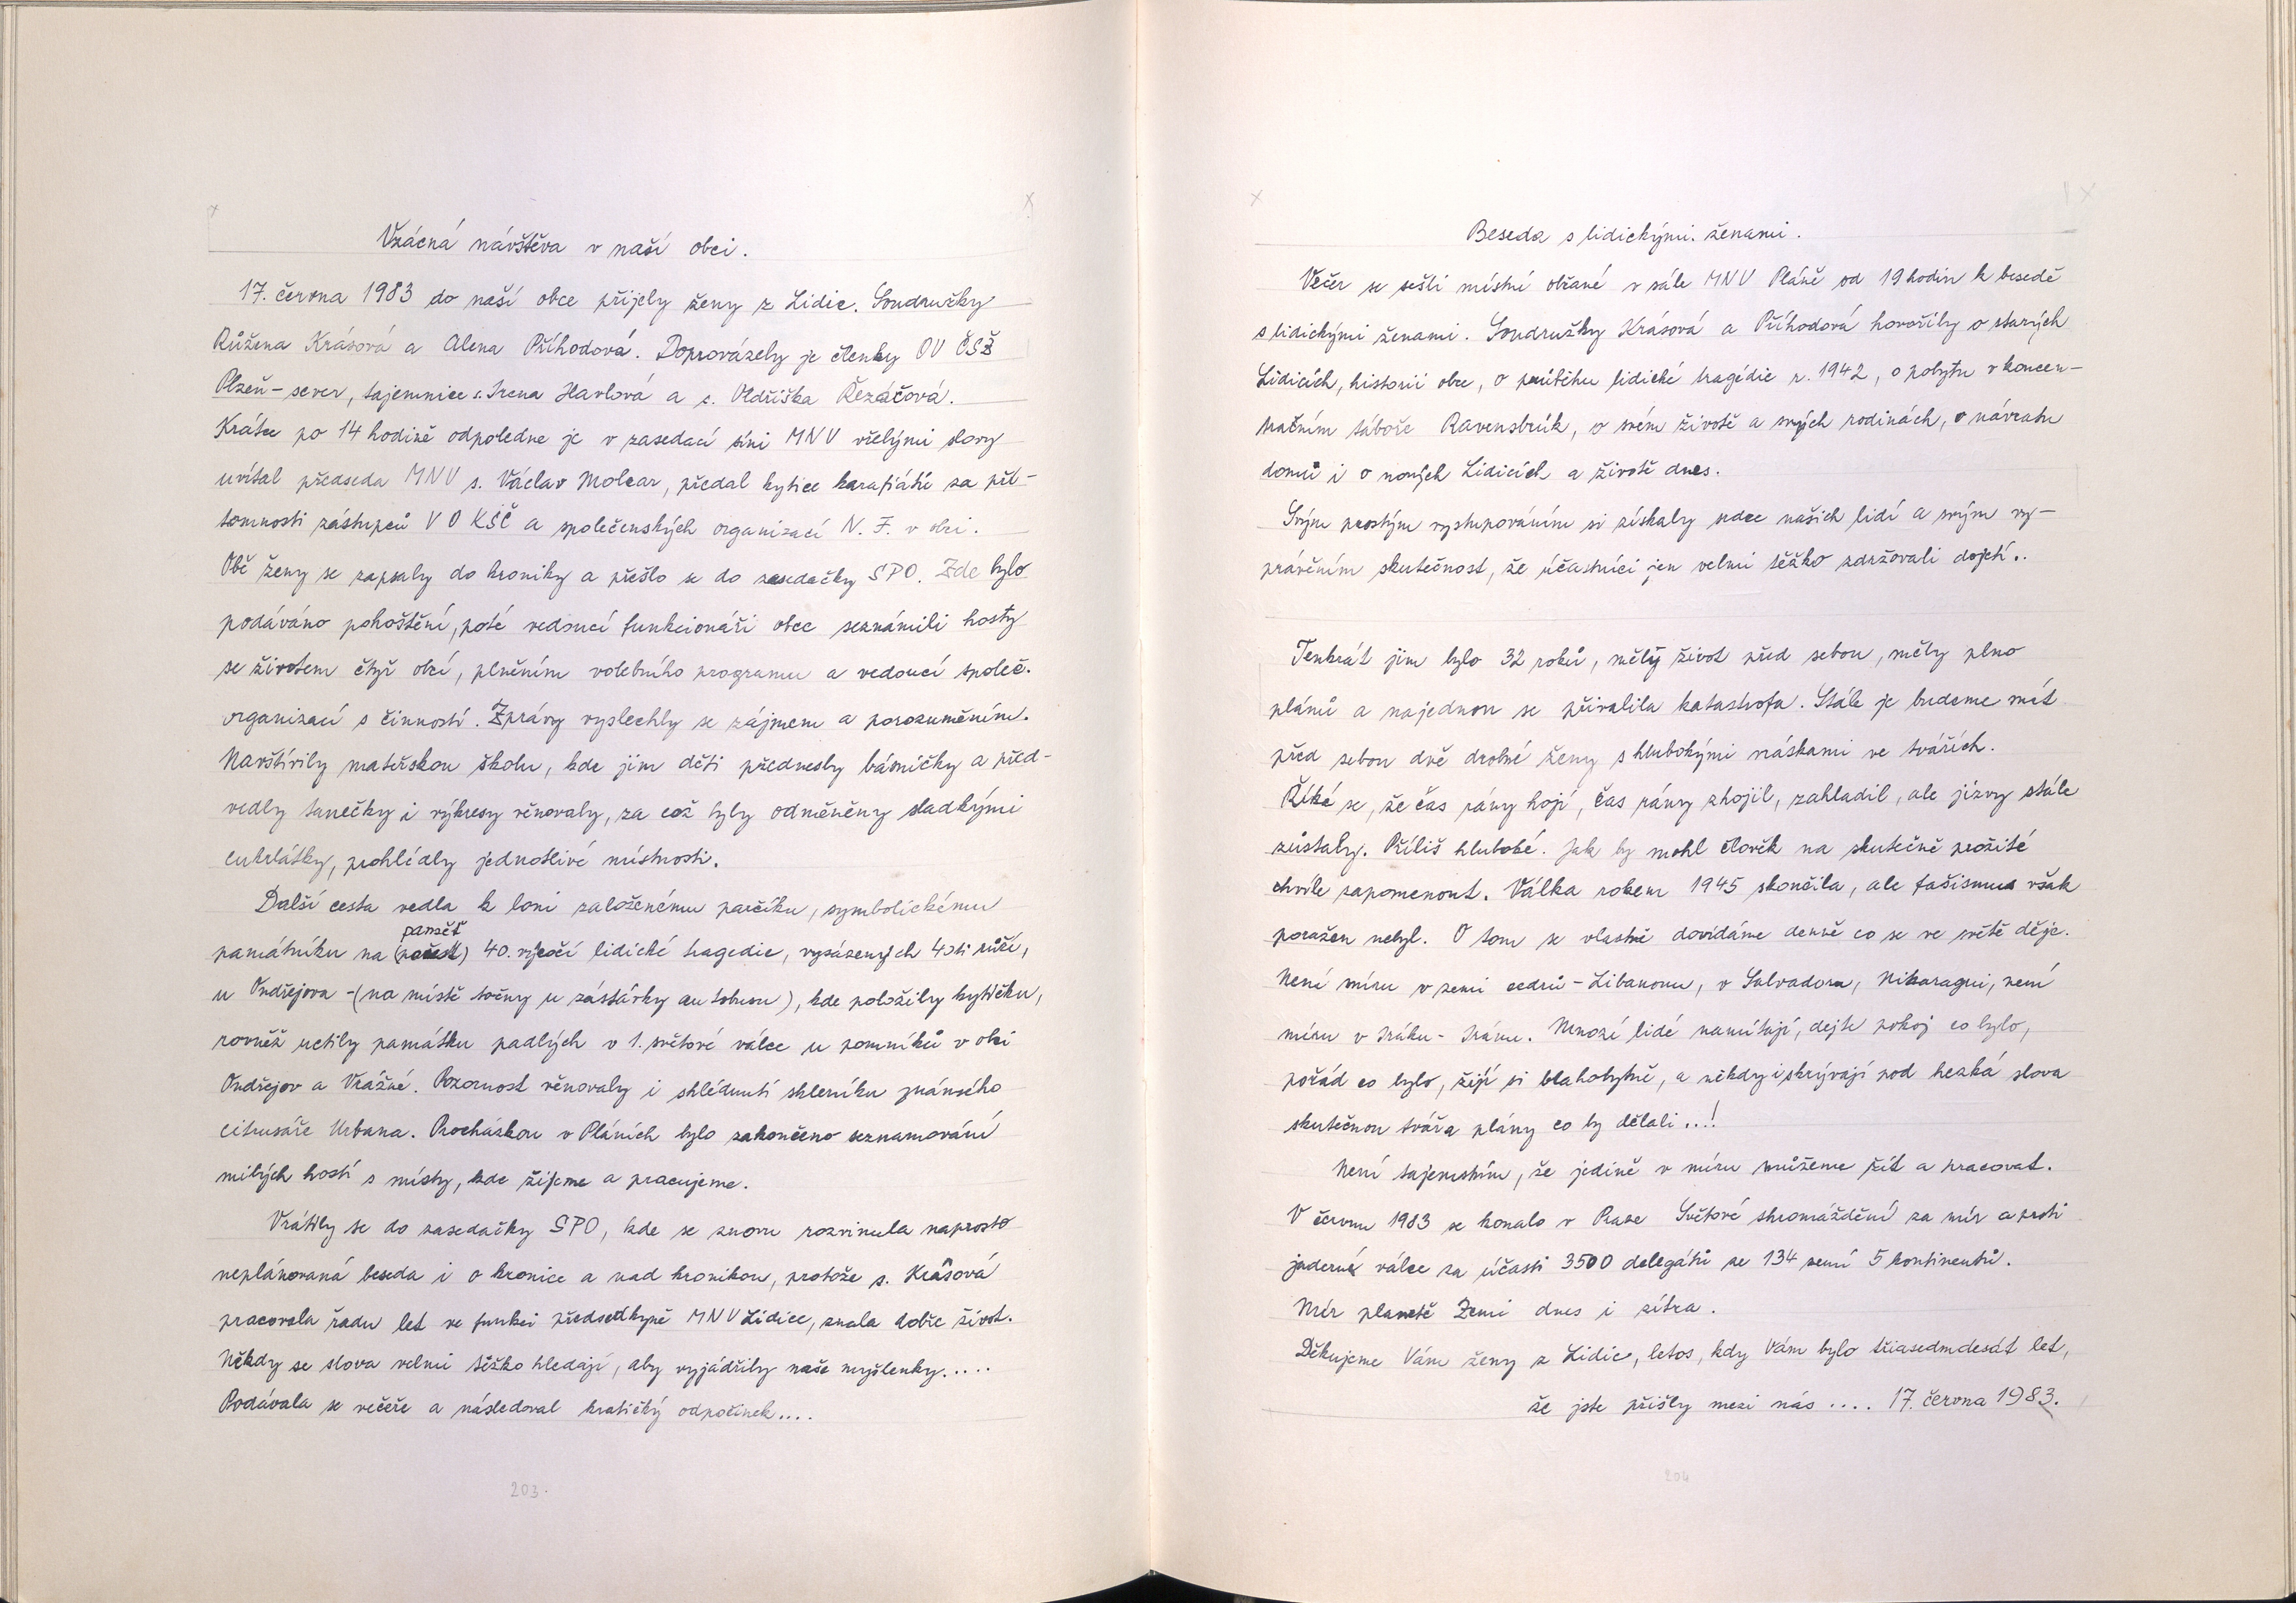 Vzácná návštěva v naší obci.
17. června 1983 do naší obce přijely ženy z Lidic. Soudružky
Růžena Krásová a Alena Příhodová. Doprovázely je členky OV ČSŽ
Plzeň - sever, tajemnice s. Irena Havlová a s. Oldřiška Řezáčová.
Krátce po 14 hodině odpoledne je v zasedací síni MNV vřelými slovy
uvítal předseda MNV s. Václav Molcar, předal kytice karafiátů za pří-
tomnosti zástupců V O KSČ a společenských organizací N. F. v obci.
Obě ženy se zapsaly do kroniky a přešlo se do zasedačky SPO. Zde bylo
podáváno pohoštění, poté vedoucí funkcionáři obce seznámili hosty
se životem čtyř obcí, plněním volebního programu a vedoucí společ.
organizací s činností. Zprávy vyslechly se zájmem a porozuměním.
Navštívily mateřskou školu, kde jim děti přednesly básničky a před-
vedly tanečky i výkresy věnovaly, za což byly odměněny sladkými
cukrlátky, prohlédly jednotlivé místnosti.
Další cesta vedla k loni založenému parčíku, symbolickému
paměť
památníku na (počest) 40. výročí lidické tragedie, vysázených 40ti růží,
u Ondřejova - (na místě točny u zástávky autobusu), kde položily kytičku,
rovněž uctily památku padlých v 1. světové válce u pomníků v obci
Ondřejov a Vrážné. Pozornost věnovaly i shlédnutí skleníku známého
citrusáře Urbana. Procházkou v Pláních bylo zakončeno seznamování
milých hostí s místy, kde žijeme a pracujeme.
Vrátily se do zasedačky SPO, kde se znovu rozvinula naprosto
neplánovaná beseda i o kronice a nad kronikou, protože s. Krásová
pracovala řadu let ve funkci předsedkyně MNV Lidice, znala dobře život.
Někdy se slova velmi těžko hledají, aby vyjádřily naše myšlenky.....
Podávala se večeře a následoval kratičký odpočinek....
203.
Beseda s lidickými ženami.
Večer se sešli místní občané v sále MNV Pláně od 19 hodin k besedě
s lidickými ženami. Soudružky Krásová a Příhodová hovořily o starých
Lidicích, historii obce, o průběhu lidické tragédie r. 1942, o pobytu v koncen-
tračním táboře Ravensbrük, o svém životě a svých rodinách, o návratu
domů i o nových Lidicích a životě dnes.
Svým prostým vystupováním si získaly srdce našich lidí a svým vy-
právěním skutečnost, že účastníci jen velmi těžko zdržovali dojetí..
Tenkrát jim bylo 32 roků, měly život před sebou, měly plno
plánů a najednou se přivalila katastrofa. Stále je budeme mít
před sebou dvě drobné ženy s hlubokými vráskami ve tvářích.
Říká se, že čas rány hojí, čas rány zhojil, zahladil, ale jizvy stále
zůstaly. Příliš hluboké. Jak by mohl člověk na skutečně prožité
chvíle zapomenout. Válka rokem 1945 skončila, ale fašismus však
poražen nebyl. O tom se vlastně dovídáme denně co se ve světě děje.
Není míru v zemi cedrů - Libanonu, v Salvadoru, Nikaragui, není
míru v Iráku - Iránu. Mnozí lidé namítají, dejte pokoj co bylo,
pořád co bylo, žijí si blahobytně, a někdy i skrývají pod hezká slova
skutečnou tvář a plány co by dělali ...!
Není tajemstvím, že jedině v míru můžeme žít a pracovat.
V červnu 1983 se konalo v Praze Světové shromáždění za mír a proti
jaderné válce za účasti 3500 delegátů ze 134 zemí 5 kontinentů.
Mír planetě Zemi dnes i zítra.
Děkujeme Vám ženy z Lidic, letos, kdy Vám bylo třiasedmdesát let,
že jste přišly mezi nás .... 17. června 1983.
204